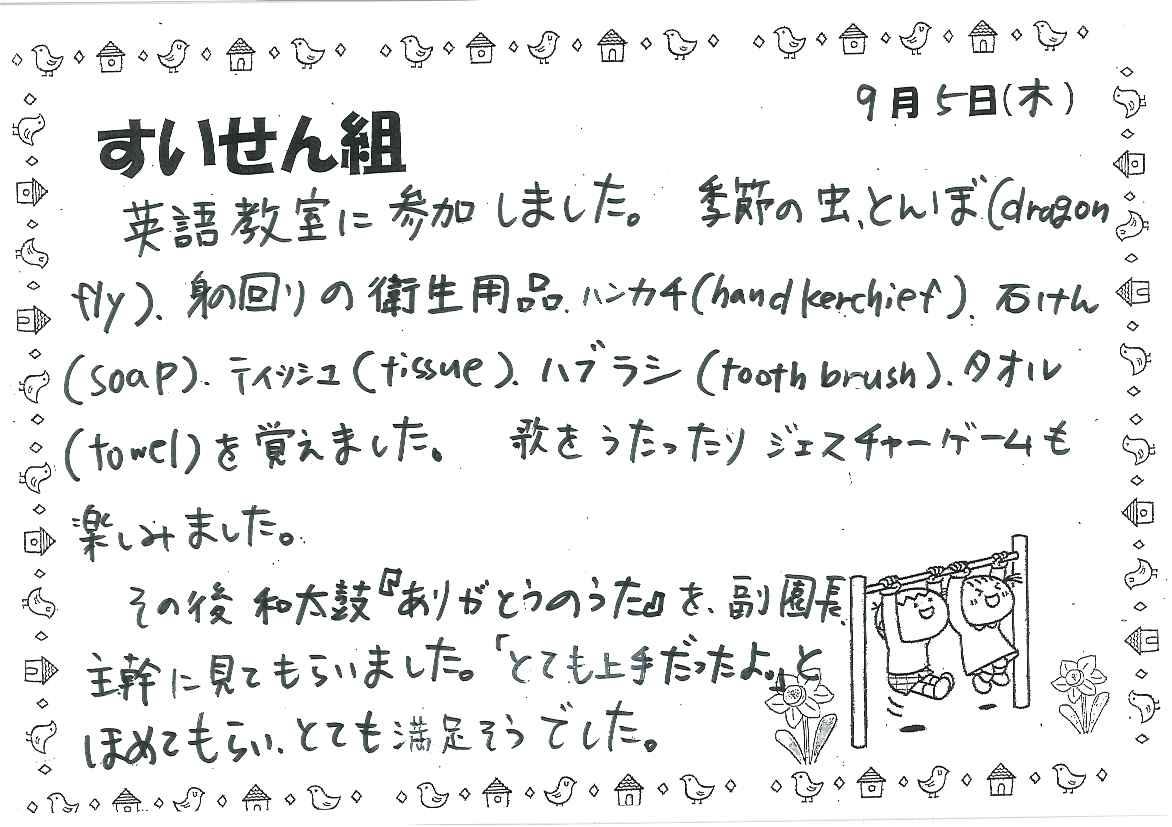 9月5日(木)
すいせん組
英語教室に参加しました。 季節の虫、とんぼ(dragon
fly)、身の回りの衛生用品、ハンカチ(handkerchief)、石けん
(soap)、ティッシュ(tissue)、ハブラシ(tooth brush)、タオル
(towel)を覚えました。 歌をうたったりジェスチャーゲームも
楽しみました。
その後和太鼓『ありがとうのうた』を、副園長、
主幹に見てもらいました。「とても上手だったよ。」と
ほめてもらい、とても満足そうでした。